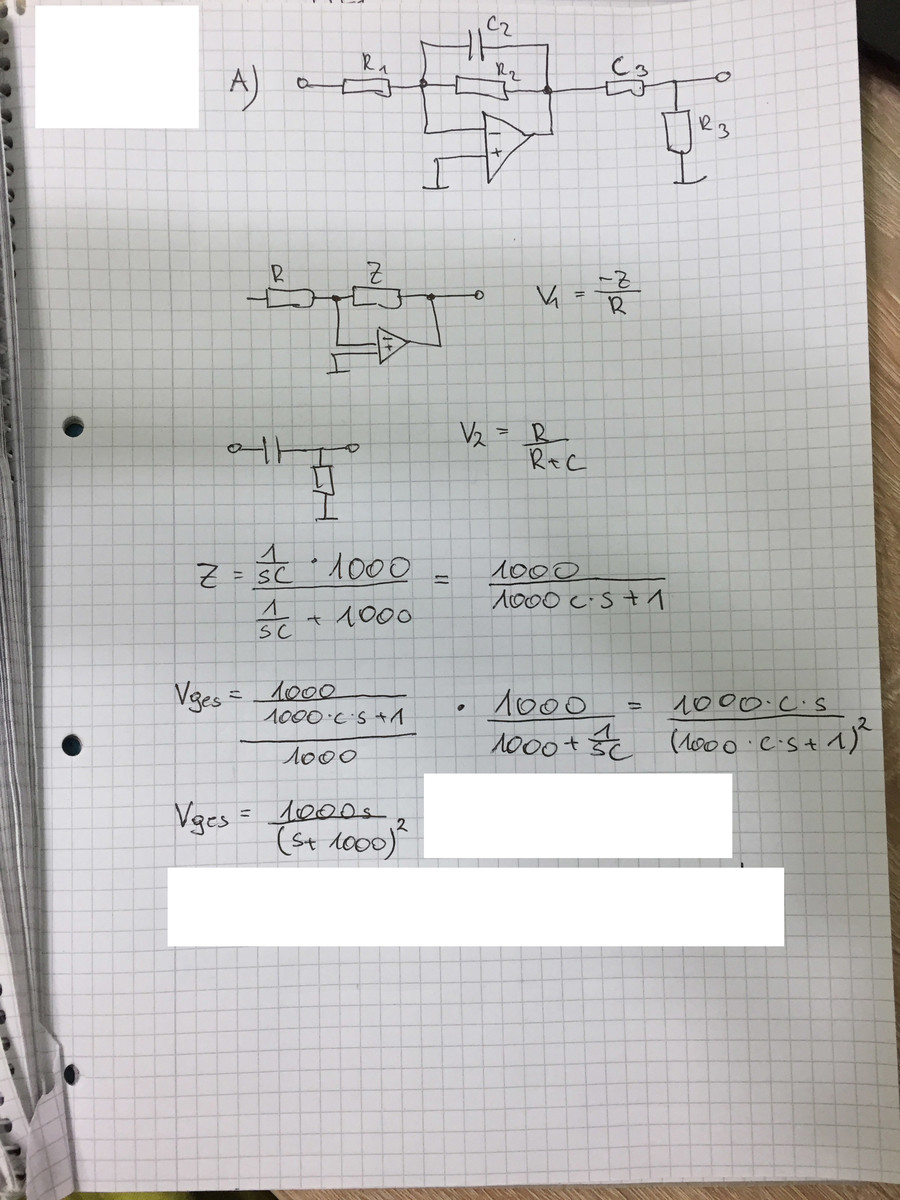 A) R1 C2 R2 C3 R3
− +
R Z V1 = −Z/R
− +
V2 = R/(R+C)
Z = (1/sC · 1000)/(1/sC + 1000) = 1000/(1000 C·s + 1)
Vges = (1000/(1000·C·s+1))/1000 · 1000/(1000 + 1/sC) = 1000·C·s/(1000·C·s+1)²
Vges = 1000s/(s+1000)²